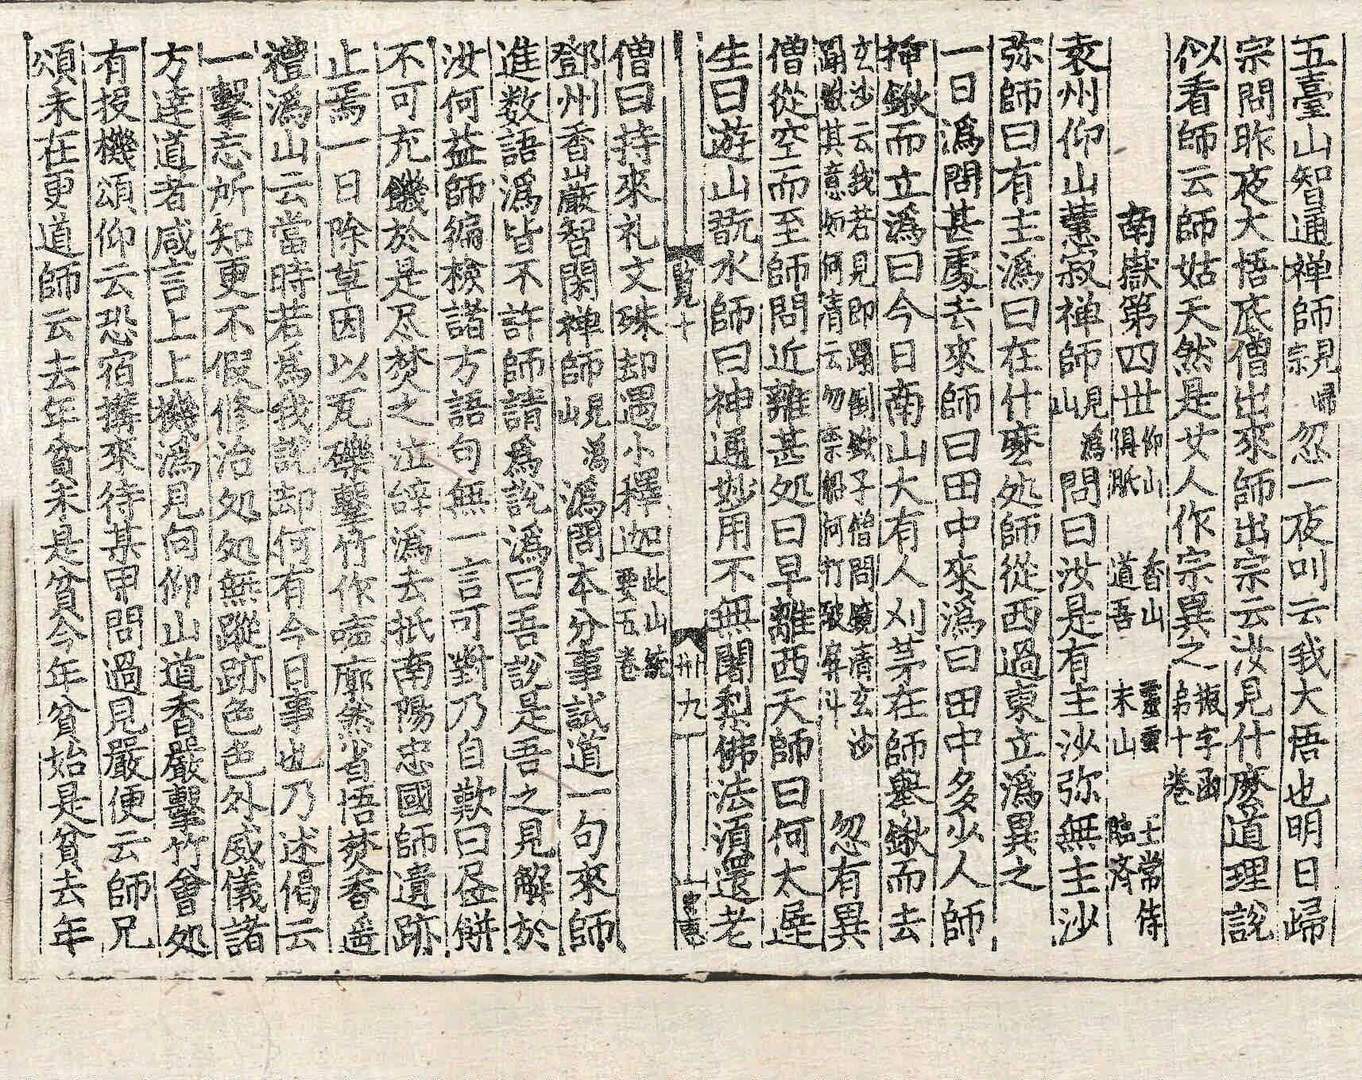 五臺山智通禅師見歸宗忽一夜叫云我大悟也明日歸
宗問昨夜大悟底僧出來師出宗云汝見什麽道理說
似看師云師姑天然是女人作宗異之振字函弟十卷
南嶽第四世仰山俱胝香山道吾靈雲末山王常侍臨济
袁州仰山慧寂禅師見潙山問曰汝是有主沙弥無主沙
弥師曰有主潙曰在什麽処師從西過東立潙異之
一日潙問甚處去來師曰田中來潙曰田中多少人師
挿鍬而立潙曰今日南山大有人刈茅在師舉鍬而去
玄沙云我若見即踢倒鍬子僧問鏡清玄沙
踢鍬其意如何清云勿柰船何打破戽斗忽有異
僧從空而至師問近離甚処曰早離西天師曰何太遅
生曰遊山翫水師曰神通妙用不無闍梨佛法湏還老
覧十
卅九
僧曰持來礼文殊却遇小釋迦此山統要五卷
鄧州香嵓嚴智閑禅師見潙山潙問本分事試道一句來師
進数語潙皆不許師請爲說潙曰吾說是吾之見解於
汝何益師編檢諸方語句無一言可對乃自歎曰昼餅
不可充饑於是尽焚之泣辞潙去抵南陽忠國師遺跡
止焉一日除草因以瓦礫擊竹作声廓然省悟焚香遥
禮潙山云當時若為我說却何有今日事也乃述偈云
一擊忘所知更不假修治処処無蹤跡色色外威儀諸
方達道者咸言上上機潙見向仰山道香嚴擊竹會処
有投機頌仰云恐宿搆來待某甲問過見嚴便云師兄
頌未在更道師云去年貧未是貧今年貧始是貧去年